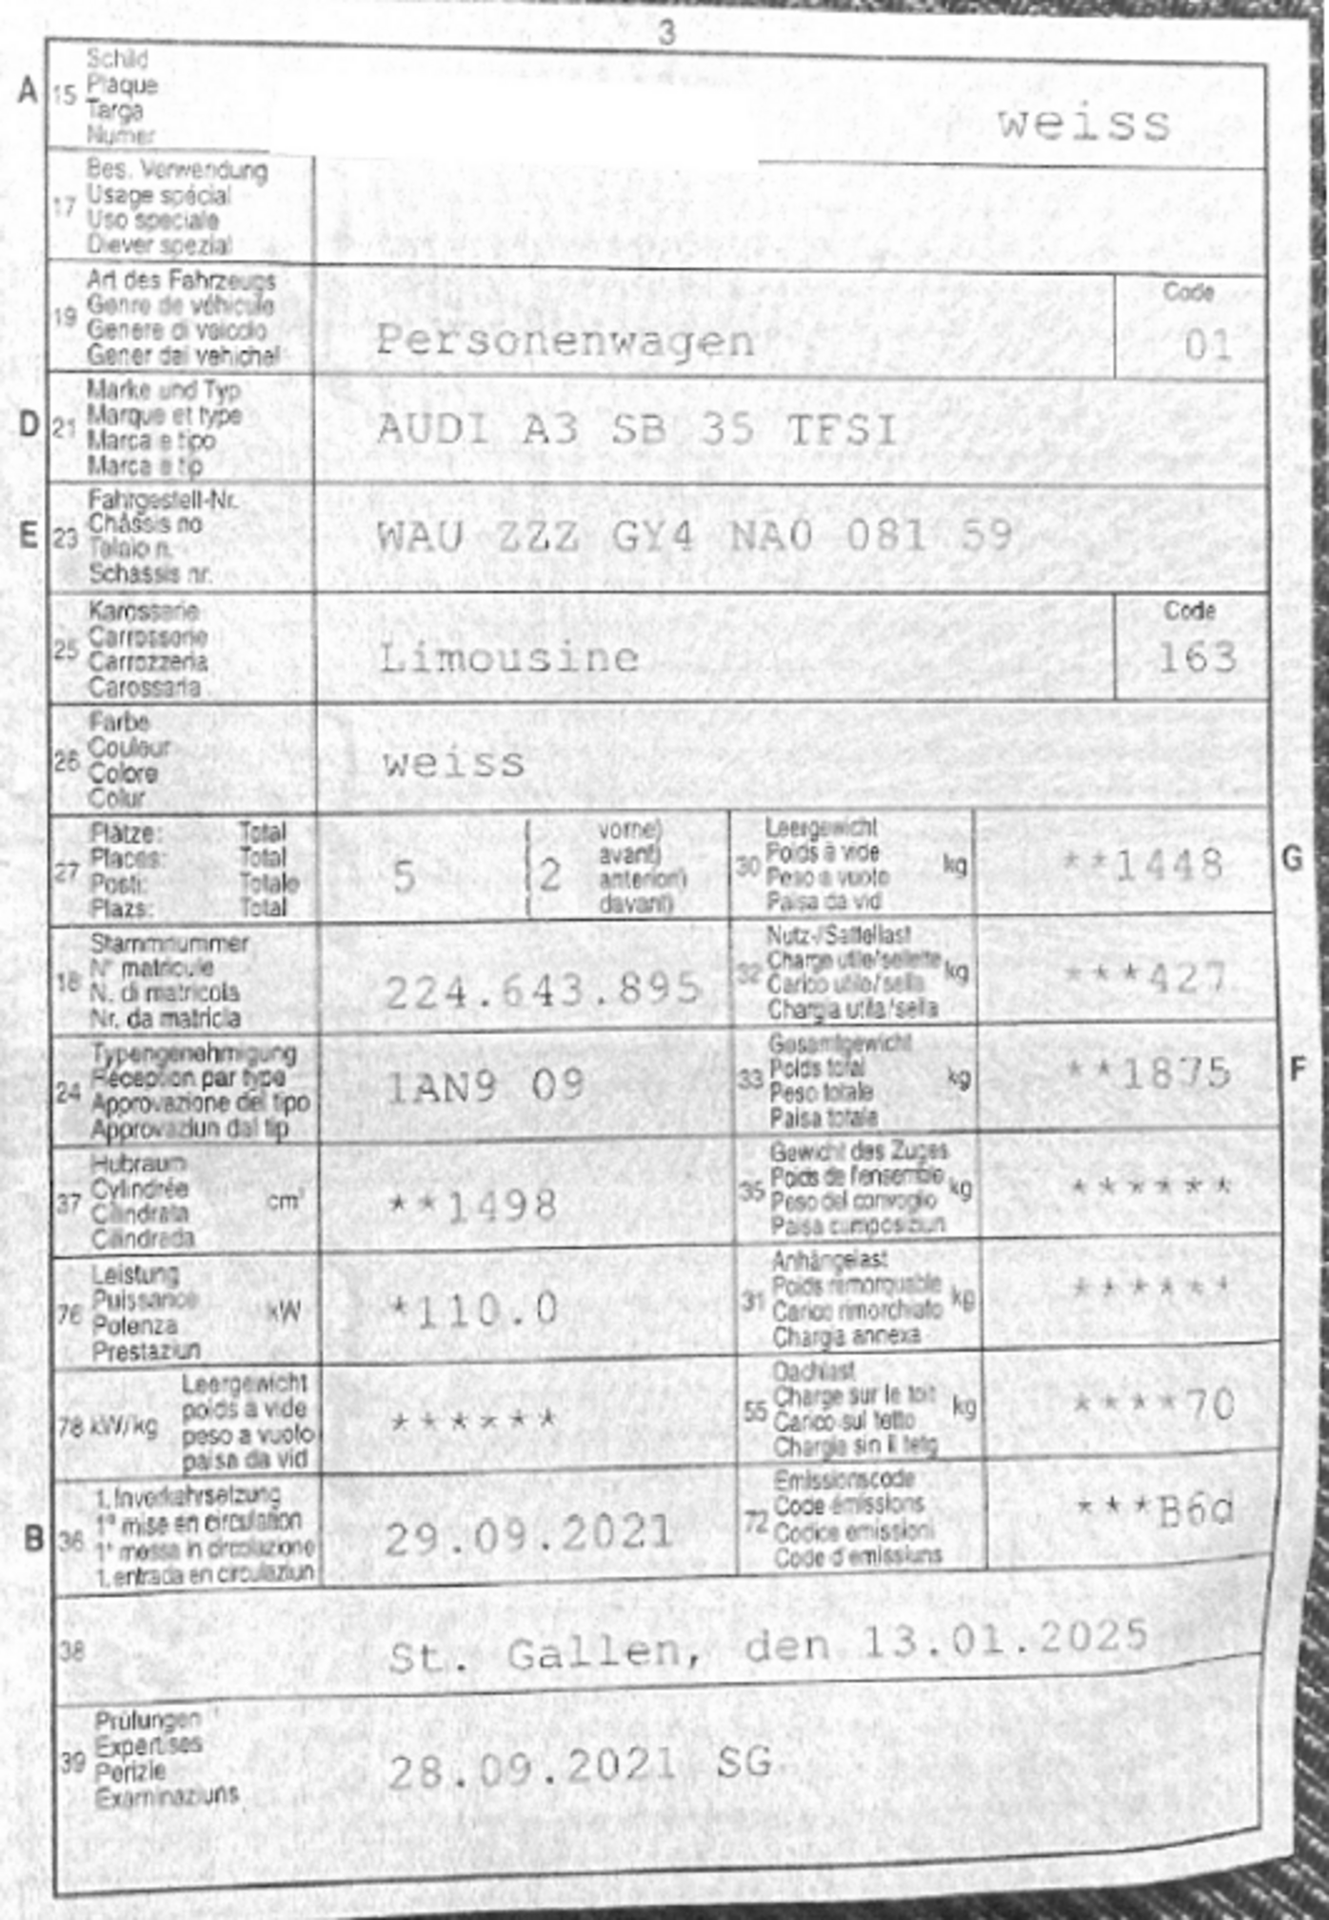 3
A 15 Schild
Plaque
Targa
Numer
weiss
17 Bes. Verwendung
Usage spécial
Uso speciale
Diever spezial
19 Art des Fahrzeugs
Genre de véhicule
Genere di veicolo
Gener dal vehichel
Personenwagen
Code
01
D 21 Marke und Typ
Marque et type
Marca e tipo
Marca e tip
AUDI A3 SB 35 TFSI
E 23 Fahrgestell-Nr.
Châssis no
Telaio n.
Schassis nr.
WAU ZZZ GY4 NA0 081 59
25 Karosserie
Carrosserie
Carrozzeria
Carossaria
Limousine
Code
163
26 Farbe
Couleur
Colore
Colur
weiss
27 Plätze: Total
Places: Total
Posti: Totale
Plazs: Total
5 (2 vorne)
avant)
anteriori)
davant)
30 Leergewicht
Poids à vide kg
Peso a vuoto
Paisa da vid
**1448
G
18 Stammnummer
N° matricule
N. di matricola
Nr. da matricla
224.643.895
32 Nutz-/Sattellast
Charge utile/sellette kg
Carico utile/sella
Chargia utila/sella
***427
24 Typengenehmigung
Réception par type
Approvazione del tipo
Approvaziun dal tip
1AN9 09
33 Gesamtgewicht
Poids total kg
Peso totale
Paisa totala
**1875
F
37 Hubraum
Cylindrée cm³
Cilindrata
Cilindrada
**1498
35 Gewicht des Zuges
Poids de l'ensemble kg
Peso del convoglio
Paisa cumposiziun
******
76 Leistung
Puissance kW
Potenza
Prestaziun
*110.0
31 Anhängelast
Poids remorquable kg
Carico rimorchiato
Chargia annexa
******
78 kW/kg Leergewicht
poids à vide
peso a vuoto
paisa da vid
******
55 Dachlast
Charge sur le toit kg
Carico sul tetto
Chargia sin il tetg
****70
B 36 1. Inverkehrsetzung
1re mise en circulation
1a messa in circolazione
1. entrada en circulaziun
29.09.2021
72 Emissionscode
Code émissions
Codice emissioni
Code d'emissiuns
***B6d
38 St. Gallen, den 13.01.2025
39 Prüfungen
Expertises
Perizie
Examinaziuns
28.09.2021 SG